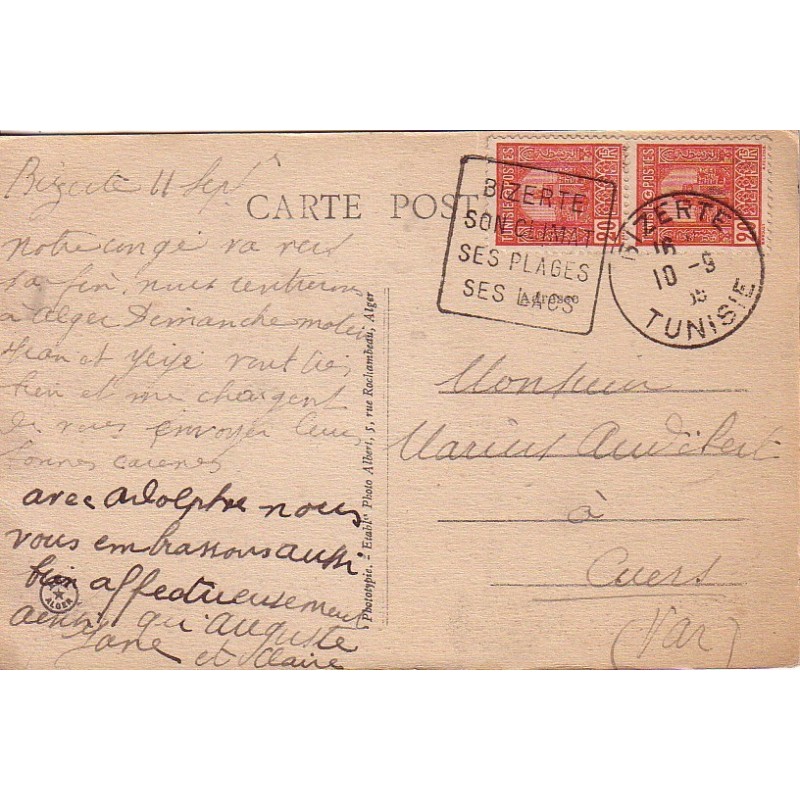 Bizerte 11 Sept
CARTE POST
notre congé va vers
sa fin, nous rentrerons
à Alger Dimanche matin
Jean et vont très
bien et me chargent
de vous envoyer leurs
bonnes caresses
avec Adolphe nous
vous embrassons aussi
bien affectueusement
ainsi qu'Auguste
Jane et Claire
ALGER
Phototypie. - Etablts Photo Albert, 5, rue Rochambeau, Alger
TUNISIE POSTES
20
TUNISIE POSTES
20
BIZERTE
SON CLIMAT
SES PLAGES
SES LACS
BIZERTE
10 -9
TUNISIE
Adresse
Monsieur
Marius Audibert
à
Cuers
(Var)